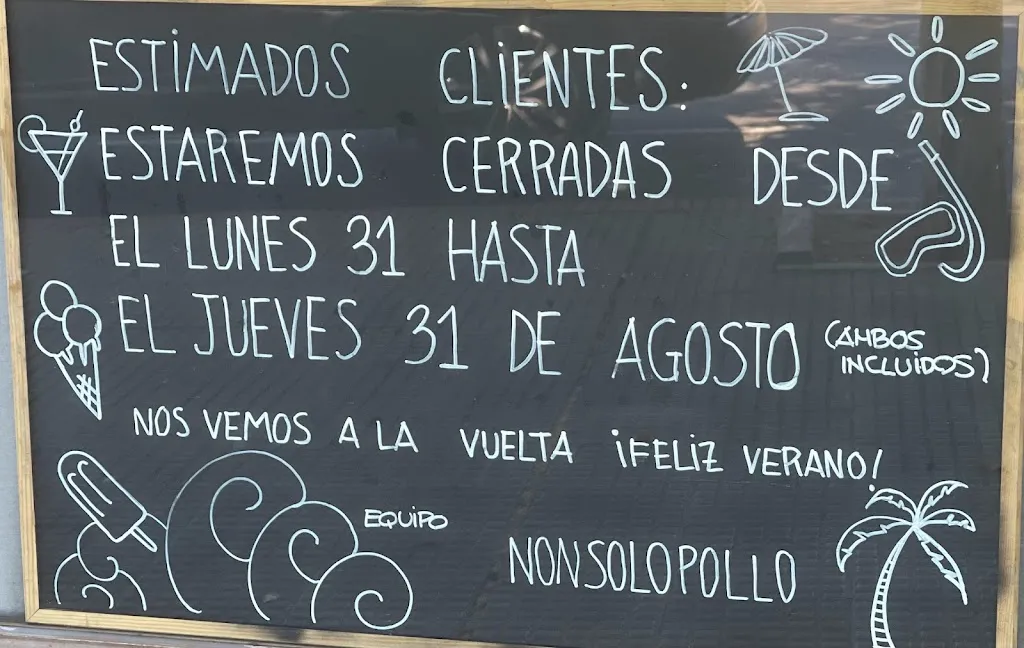 ESTIMADOS CLIENTES:
ESTAREMOS CERRADAS DESDE
EL LUNES 31 HASTA
EL JUEVES 31 DE AGOSTO (AMBOS
INCLUIDOS)
NOS VEMOS A LA VUELTA ¡FELIZ VERANO!
EQUIPO
NONSOLOPOLLO